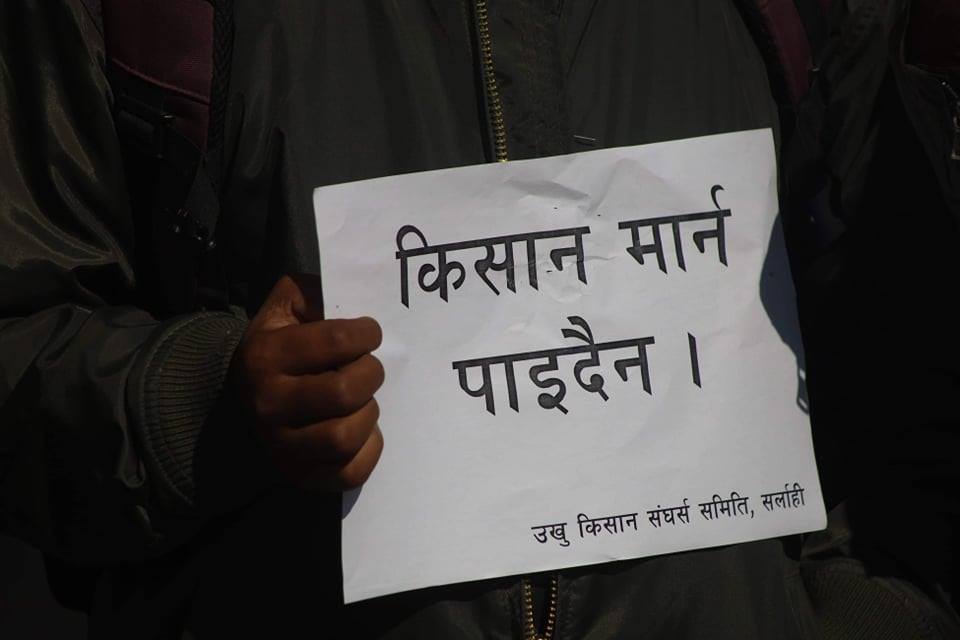 किसान मार्न
पाइदैन ।
उखु किसान संघर्स समिति, सर्लाही